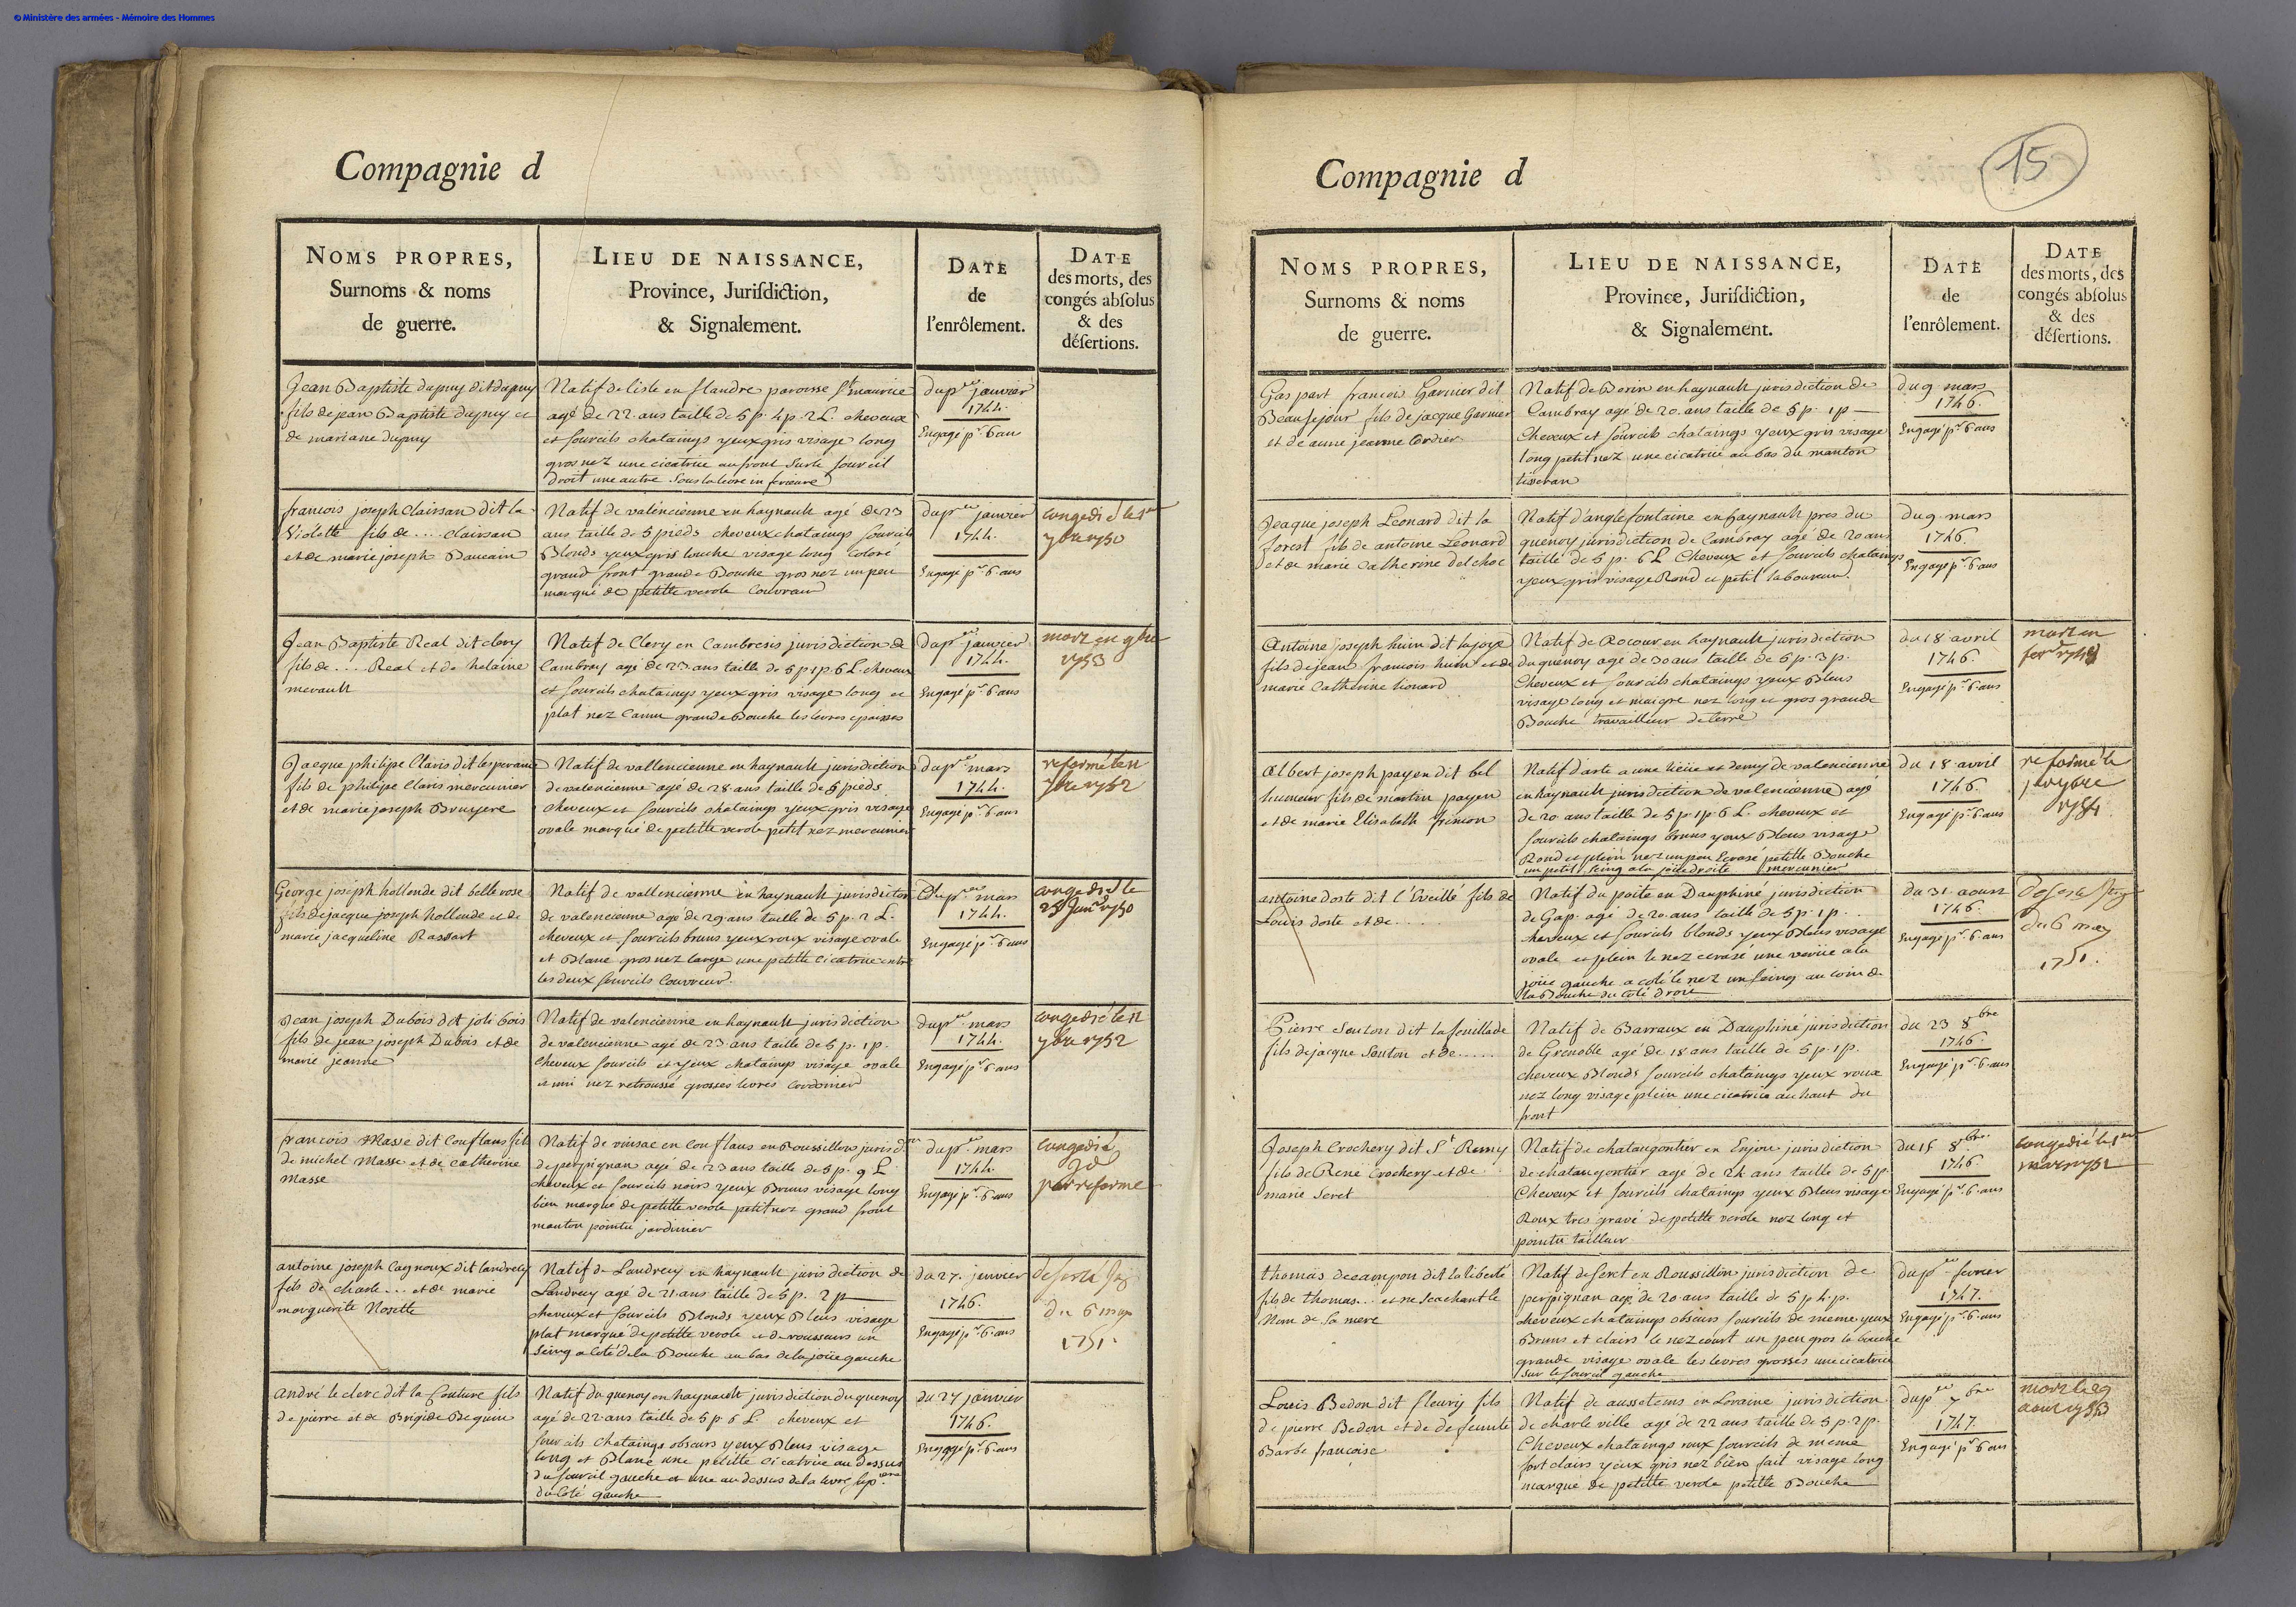 © Ministère des armées - Mémoire des Hommes
Compagnie d
NOMS PROPRES,
Surnoms & noms
de guerre.
LIEU DE NAISSANCE,
Province, Jurisdiction,
& Signalement.
DATE
de
l'enrôlement.
DATE
des morts, des
congés absolus
& des
désertions.
Jean Baptiste dupuy dit dupuy
fils de jean Baptiste dupuy et
de mariane dupuy
Natif de lisle en flandre paroisse St maurice
agé de 22 ans taille de 5 p. 4 p. 2 L. cheveux
et sourcils chataings yeux gris visage long
gros nez une cicatrice au front sur le sourcil
droit une autre sous la levre inferieure
du pr janvier
1744.
Engagé pr 6 ans
francois joseph Clairsan dit la
Violette fils de ... Clairsan
et de marie joseph Daucain
Natif de valencienne en haynault agé de 23
ans taille de 5 pieds cheveux chataings sourcils
Blonds yeux gris louche visage long coloré
grand front grande Bouche gros nez un peu
marqué de petitte verole Couvreur
du per janvier
1744.
Engagé pr 6 ans
congedié le 1er
7bre 1750
Jean Baptiste Real dit clery
fils de .... Real et de helaine
merault
Natif de Clery en Cambresis jurisdiction de
Cambray agé de 23 ans taille de 5 p 1 p. 6 L. cheveux
et sourcils chataings yeux gris visage long et
plat nez Camu grande Bouche les levres epaisses
du per janvier
1744.
Engagé pr 6 ans
mort en 9bre
1753
Jacque philipe Claris dit lesperance
fils de philipe Claris mercunier
et de marie joseph Bruyere
Natif de vallencienne en haynault jurisdiction
de valencienne agé de 28 ans taille de 5 pieds
cheveux et sourcils chataings yeux gris visage
ovale marqué de petitte verole petit nez mercunier
du per mars
1744.
Engagé pr 6 ans
reformé le 11
7bre 1752
George joseph hollande dit belle rose
fils de jacque joseph hollande et de
marie jacqueline Rassart
Natif de vallencienne en haynault jurisdiction
de valencienne agé de 29 ans taille de 5 p. 2 L.
cheveux et sourcils bruns yeux roux visage ovale
et Blanc gros nez large une petitte cicatrice entre
les deux sourcils Couvreur.
du per mars
1744.
Engagé pr 6 ans
congedié le
23 Juin 1750
Jean joseph Dubois dit joli bois
fils de jean joseph Dubois et de
marie jeanne
Natif de valencienne en haynault jurisdiction
de valencienne agé de 23 ans taille de 5 p. 1 p.
Cheveux sourcils et yeux chataings visage ovale
et uni nez retroussé grosses levres Cordonnier
du per mars
1744.
Engagé pr 6 ans
congedié le 11
7bre 1752
francois Masse dit Conflans fils
de michel Masse et de catherine
Masse
Natif de vinsac en Conflans en Roussillon jurisd.
de perpignan agé de 23 ans taille de 5 p. 9 L
cheveux et sourcils noirs yeux Bruns visage long
bien marqué de petitte verole petit nez grand front
manton pointu jardinier
du per mars
1744.
Engagé pr 6 ans
congedié
par reforme
antoine joseph Cagnoux dit landrecy
fils de charle .... et de marie
marguerite Nosette
Natif de Landrecy en haynault jurisdiction de
Landrecy agé de 21 ans taille de 5 p. 2 p
cheveux et sourcils Blonds yeux Bleus visage
plat marqué de petitte verole et de rousseurs un
seing a coté de la Bouche au bas de la joüe gauche
du 27. janvier
1746.
Engagé pr 6 ans
deserté
du 6 may
1751.
andré le clerc dit la Couture fils
de pierre et de Brigide Bequin
Natif du quenoy en haynault jurisdiction du quenoy
agé de 22 ans taille de 5 p. 6 L. cheveux et
sourcils chataings obscurs yeux Bleus visage
long et Blanc une petitte cicatrice au dessus
du sourcil gauche et une au dessus de la levre
du coté gauche
du 27 janvier
1746.
Engagé pr 6 ans
15
Compagnie d
NOMS PROPRES,
Surnoms & noms
de guerre.
LIEU DE NAISSANCE,
Province, Jurisdiction,
& Signalement.
DATE
de
l'enrôlement.
DATE
des morts, des
congés absolus
& des
désertions.
Gaspart francois Garnier dit
Beausejour fils de jacque Garnier
et de anne jeanne Cordier
Natif de Berin en haynault jurisdiction de
Cambray agé de 20 ans taille de 5 p. 1 p
Cheveux et sourcils chataings yeux gris visage
long petit nez une cicatrice au bas du manton
tisseran
du 9 mars
1746
Engagé pr 6 ans
Jacque joseph Leonard dit la
forest fils de antoine Leonard
et de marie catherine delchoe
Natif d'anglefontaine en haynault pres du
quenoy jurisdiction de Cambray agé de 20 ans
taille de 5 p. 6 L Cheveux et sourcils chataings
yeux gris visage Rond et petit laboureur.
du 9 mars
1746.
Engagé pr 6 ans
Antoine joseph huin dit lajoye
fils de jean francois huin et de
marie Catherine lionard
Natif de Rocour en haynault jurisdiction
du quenoy agé de 30 ans taille de 5 p. 3 p.
Cheveux et sourcils chataings yeux Bleus
visage long et maigre nez long et gros grande
Bouche travailleur de terre
du 18 avril
1746.
Engagé pr 6 ans
mort en
Albert joseph payen dit bel
humeur fils de martin payen
et de marie Elisabeth frimon
Natif d'arte a une lieüe et demy de valencienne
en haynault jurisdiction de valencienne agé
de 20 ans taille de 5 p. 1 p. 6 L. cheveux et
sourcils chataings bruns yeux Bleus visage
Rond et plein nez un peu Ecrasé petitte Bouche
un petit seing a la joüe droite mercunier
du 18 avril
1746.
Engagé pr 6 ans
reformé le
1754
antoine doste dit l'Eveillé fils de
Louis doste et de ....
Natif du poite en Dauphiné jurisdiction
de Gap. agé de 20 ans taille de 5 p. 1 p.
cheveux et sourcils blonds yeux Bleus visage
ovale et plein le nez ecrasé une verüe a la
joüe gauche a coté le nez un seing au coin de
la Bouche du coté droit
du 31 aoust
1746.
Engagé pr 6 ans
deserté
du 6 may
1751.
Pierre Souton dit la feuillade
fils de jacque Souton et de ......
Natif de Barraux en Dauphiné jurisdiction
de Grenoble agé de 18 ans taille de 5 p. 1 p.
cheveux Blonds sourcils chataings yeux roux
nez long visage plein une cicatrice au haut du
front
du 23 8bre
1746.
Engagé pr 6 ans
Joseph Crochery dit St Remy
fils de René Crochery et de
marie Seret
Natif de chataugontier en Enjou jurisdiction
de chataugontier agé de 24 ans taille de 5 p
Cheveux et sourcils chataings yeux Bleus visage
Roux tres gravé de petitte verole nez long et
pointu tailleur
du 15 8bre
1746.
Engagé pr 6 ans
congedié le 1er
mars 1752
thomas decampon dit la liberté
fils de thomas... et ne scachant le
Nom de sa mere
Natif de Seret en Roussillon jurisdiction de
perpignan agé de 20 ans taille de 5 p 4 p.
cheveux chataings obscurs sourcils de meme yeux
Bruns et clairs le nez court un peu gros la bouche
grande visage ovale les levres grosses une cicatrice
sur le sourcil gauche
du per fevrier
1747.
Engagé pr 6 ans
Louis Bedon dit fleury fils
de pierre Bedon et de defeunte
Barbe francoise
Natif de aussotems en Loraine jurisdiction
de charle ville agé de 22 ans taille de 5 p. 2 p.
Cheveux chataings roux sourcils de meme
fort clairs yeux gris nez bien fait visage long
marqué de petitte verole petitte Bouche
du per 7bre
1747.
Engagé pr 6 ans
mort le 29
aout 1753